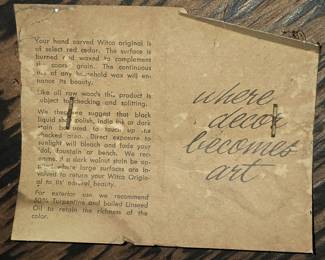 Your hand carved Witco original is
of select red cedar. The surface is
burned and waxed to complement
the coars grain. The continuous
use of any household wax will en-
hance its beauty.
Like all raw woods this product is
subject to checking and splitting.
We therefore suggest that black
liquid shoe polish, india ink or dark
stain be used to touch up the
checked area. Direct exposure to
sunlight will bleach and fade your
idol, fountain or bench. We rec-
ommend a dark walnut stain be ap-
plied where large surfaces are in-
volved to return your Witco Origin-
al to its' natural beauty.
For exterior use we recommend
50% Turpentine and boiled Linseed
Oil to retain the richness of the
color.
where
decor
becomes
art